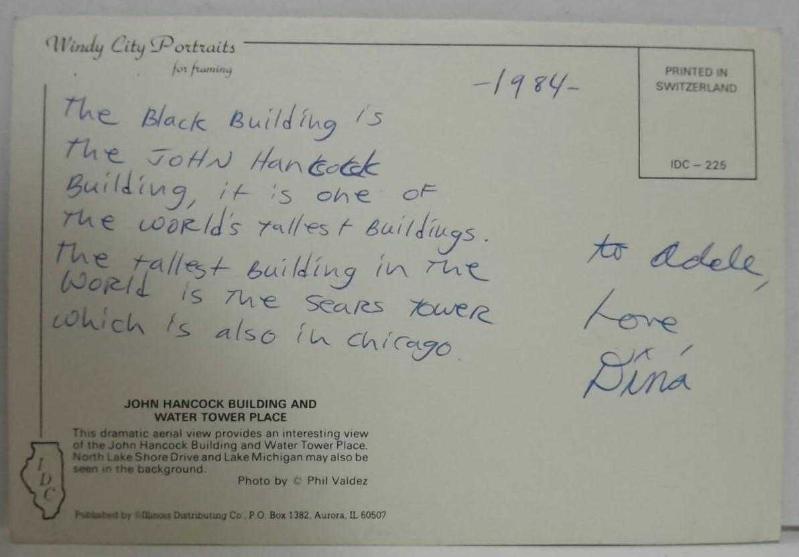 Windy City Portraits
for framing
-1984-
PRINTED IN
SWITZERLAND
IDC - 225
The Black Building is
the JOHN Hancock
Building, it is one of
the world's tallest Buildings.
The tallest Building in the
World is the Sears Tower
which is also in chicago.
to Adele,
Love
Dina
JOHN HANCOCK BUILDING AND
WATER TOWER PLACE
This dramatic aerial view provides an interesting view
of the John Hancock Building and Water Tower Place.
North Lake Shore Drive and Lake Michigan may also be
seen in the background.
Photo by © Phil Valdez
IDC
Published by ©Illinois Distributing Co., P.O. Box 1382, Aurora, IL 60507